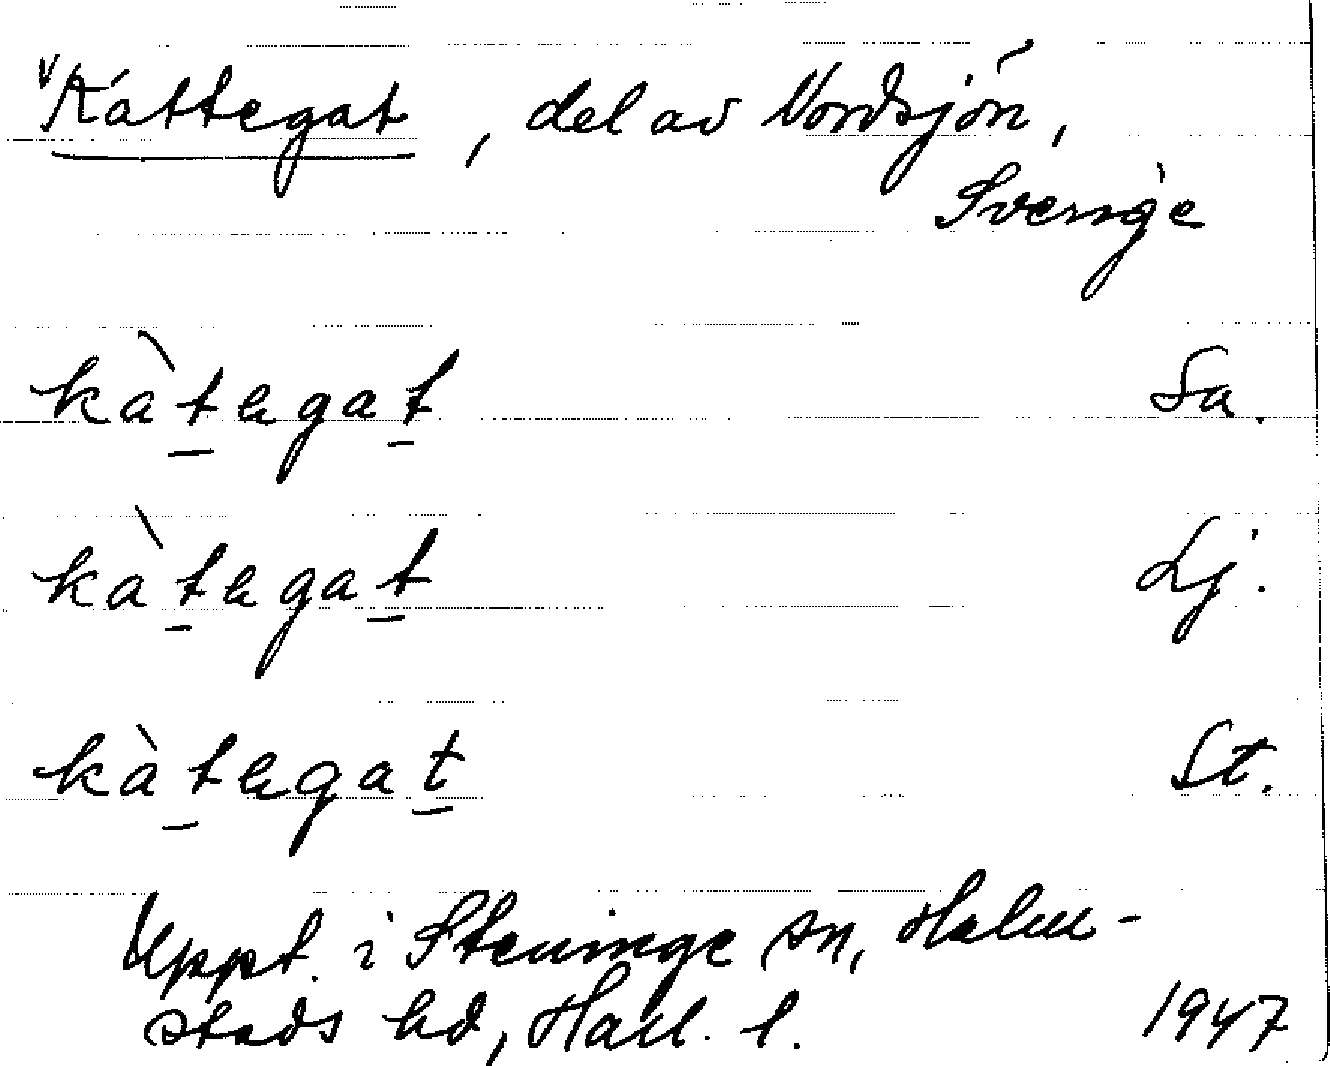 ᵛKattegat, del av Nordsjön,
Sverige
kàt̠egat̠ Sa.
kàt̠egat̠ Lj.
kàt̠egat̠ St.
Uppt. i Steninge sn, Halm-
stads hd, Hall. l. 1947